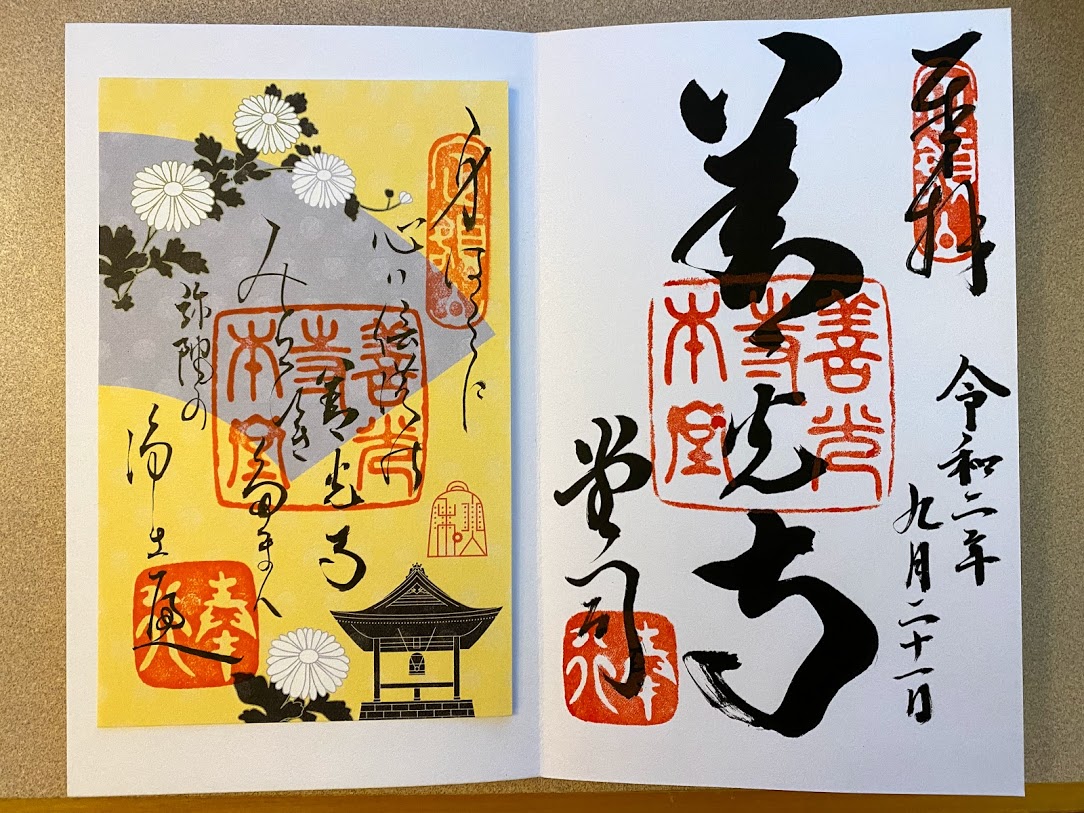 奉拝
令和二年
九月二十一日
善光寺
善光寺本堂
堂司
奉行
身はこゝに
心ハ信濃の
善光寺
みちびき
弥陀の
浄土
善光寺本堂